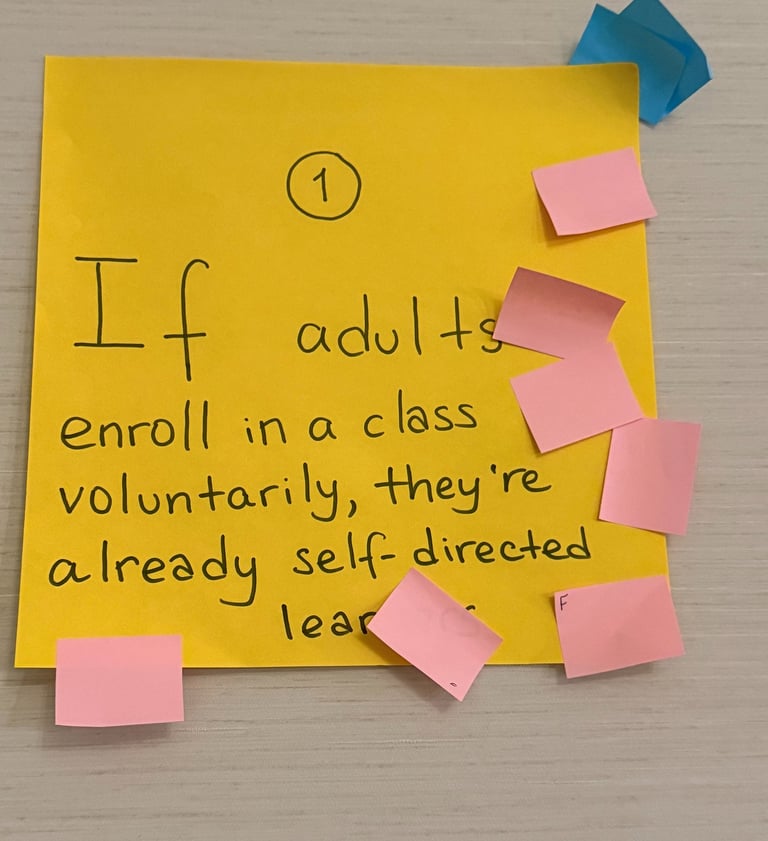 1
If adults
enroll in a class
voluntarily, they're
already self-directed
F